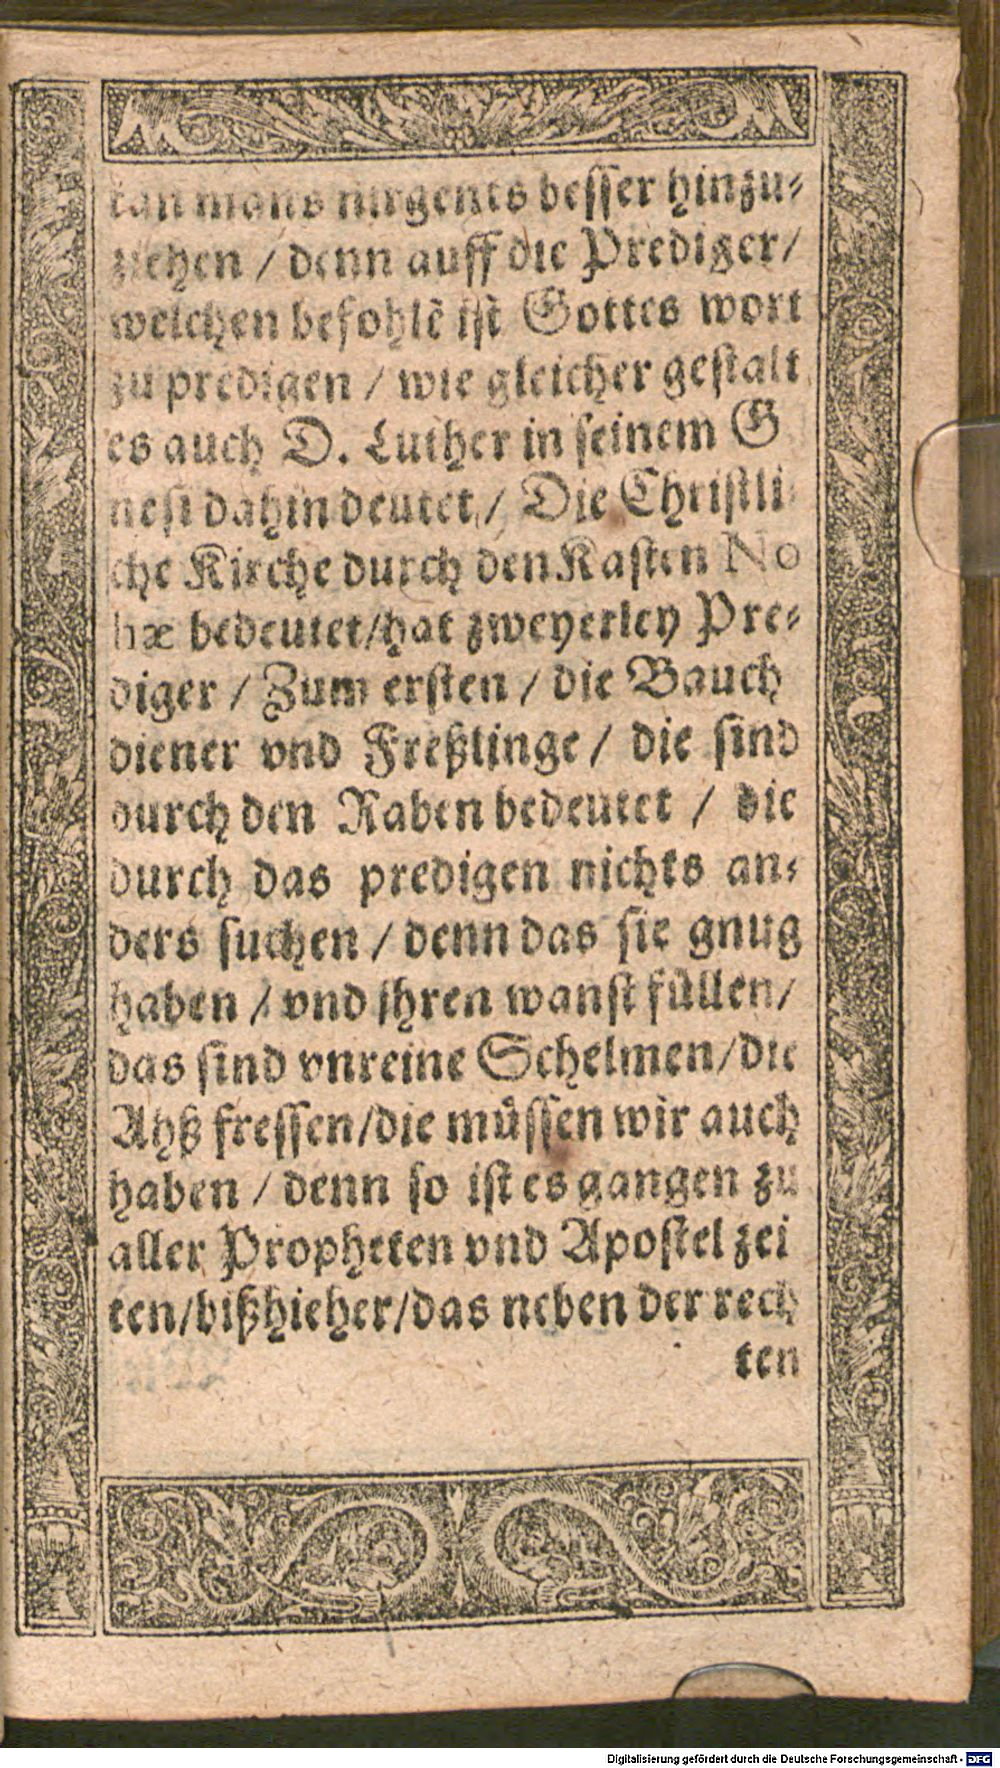 kan mans nirgents besser hinzu⸗
ziehen / denn auff die Prediger/
welchen befohlẽ ist Gottes wort
zu predigen / wie gleicher gestalt
es auch D. Luther in seinem G
nesi dahin deutet / Die Christli
che Kirche durch den Kasten No
hæ bedeutet/hat zweyerley Pre⸗
diger / Zum ersten / die Bauch
diener vnd Freßlinge / die sind
durch den Raben bedeutet / die
durch das predigen nichts an⸗
ders suchen / denn das sie gnug
haben / vnd jhren wanst füllen/
das sind vnreine Schelmen/die
Ahß fressen/die müssen wir auch
haben / denn so ist es gangen zu
aller Propheten vnd Apostel zei
ten/bißhieher/das neben der rech
ten
Digitalisierung gefördert durch die Deutsche Forschungsgemeinschaft - DFG